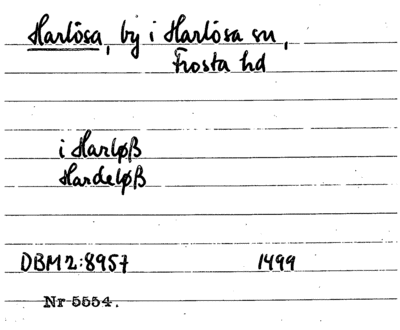 Harlösa, by i Harlösa sn,
Frosta hd
i Harløß
Hardeløß
DBM2:8957 1499
Nr 5554.